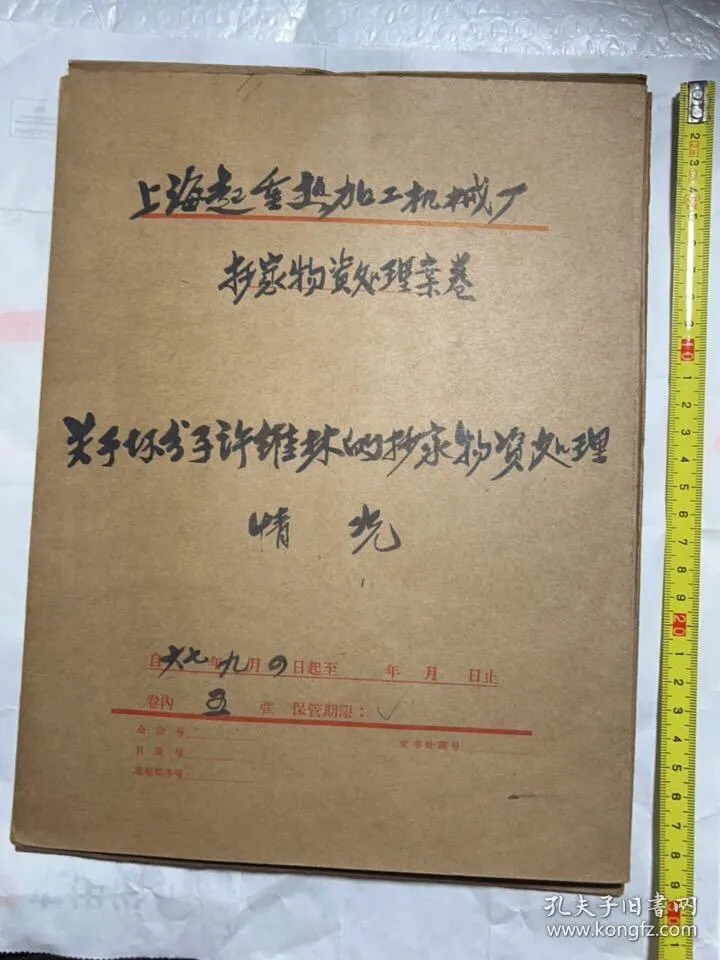 上海起重热加工机械厂
抄家物资处理案卷
关于坏分子许维林的抄家物资处理
情况
自六七年九月四日起至 年 月 日止
卷内 五 张 保管期限：
全宗号
目录号 文书处理号
案卷顺序号
孔夫子旧书网
www.kongfz.com